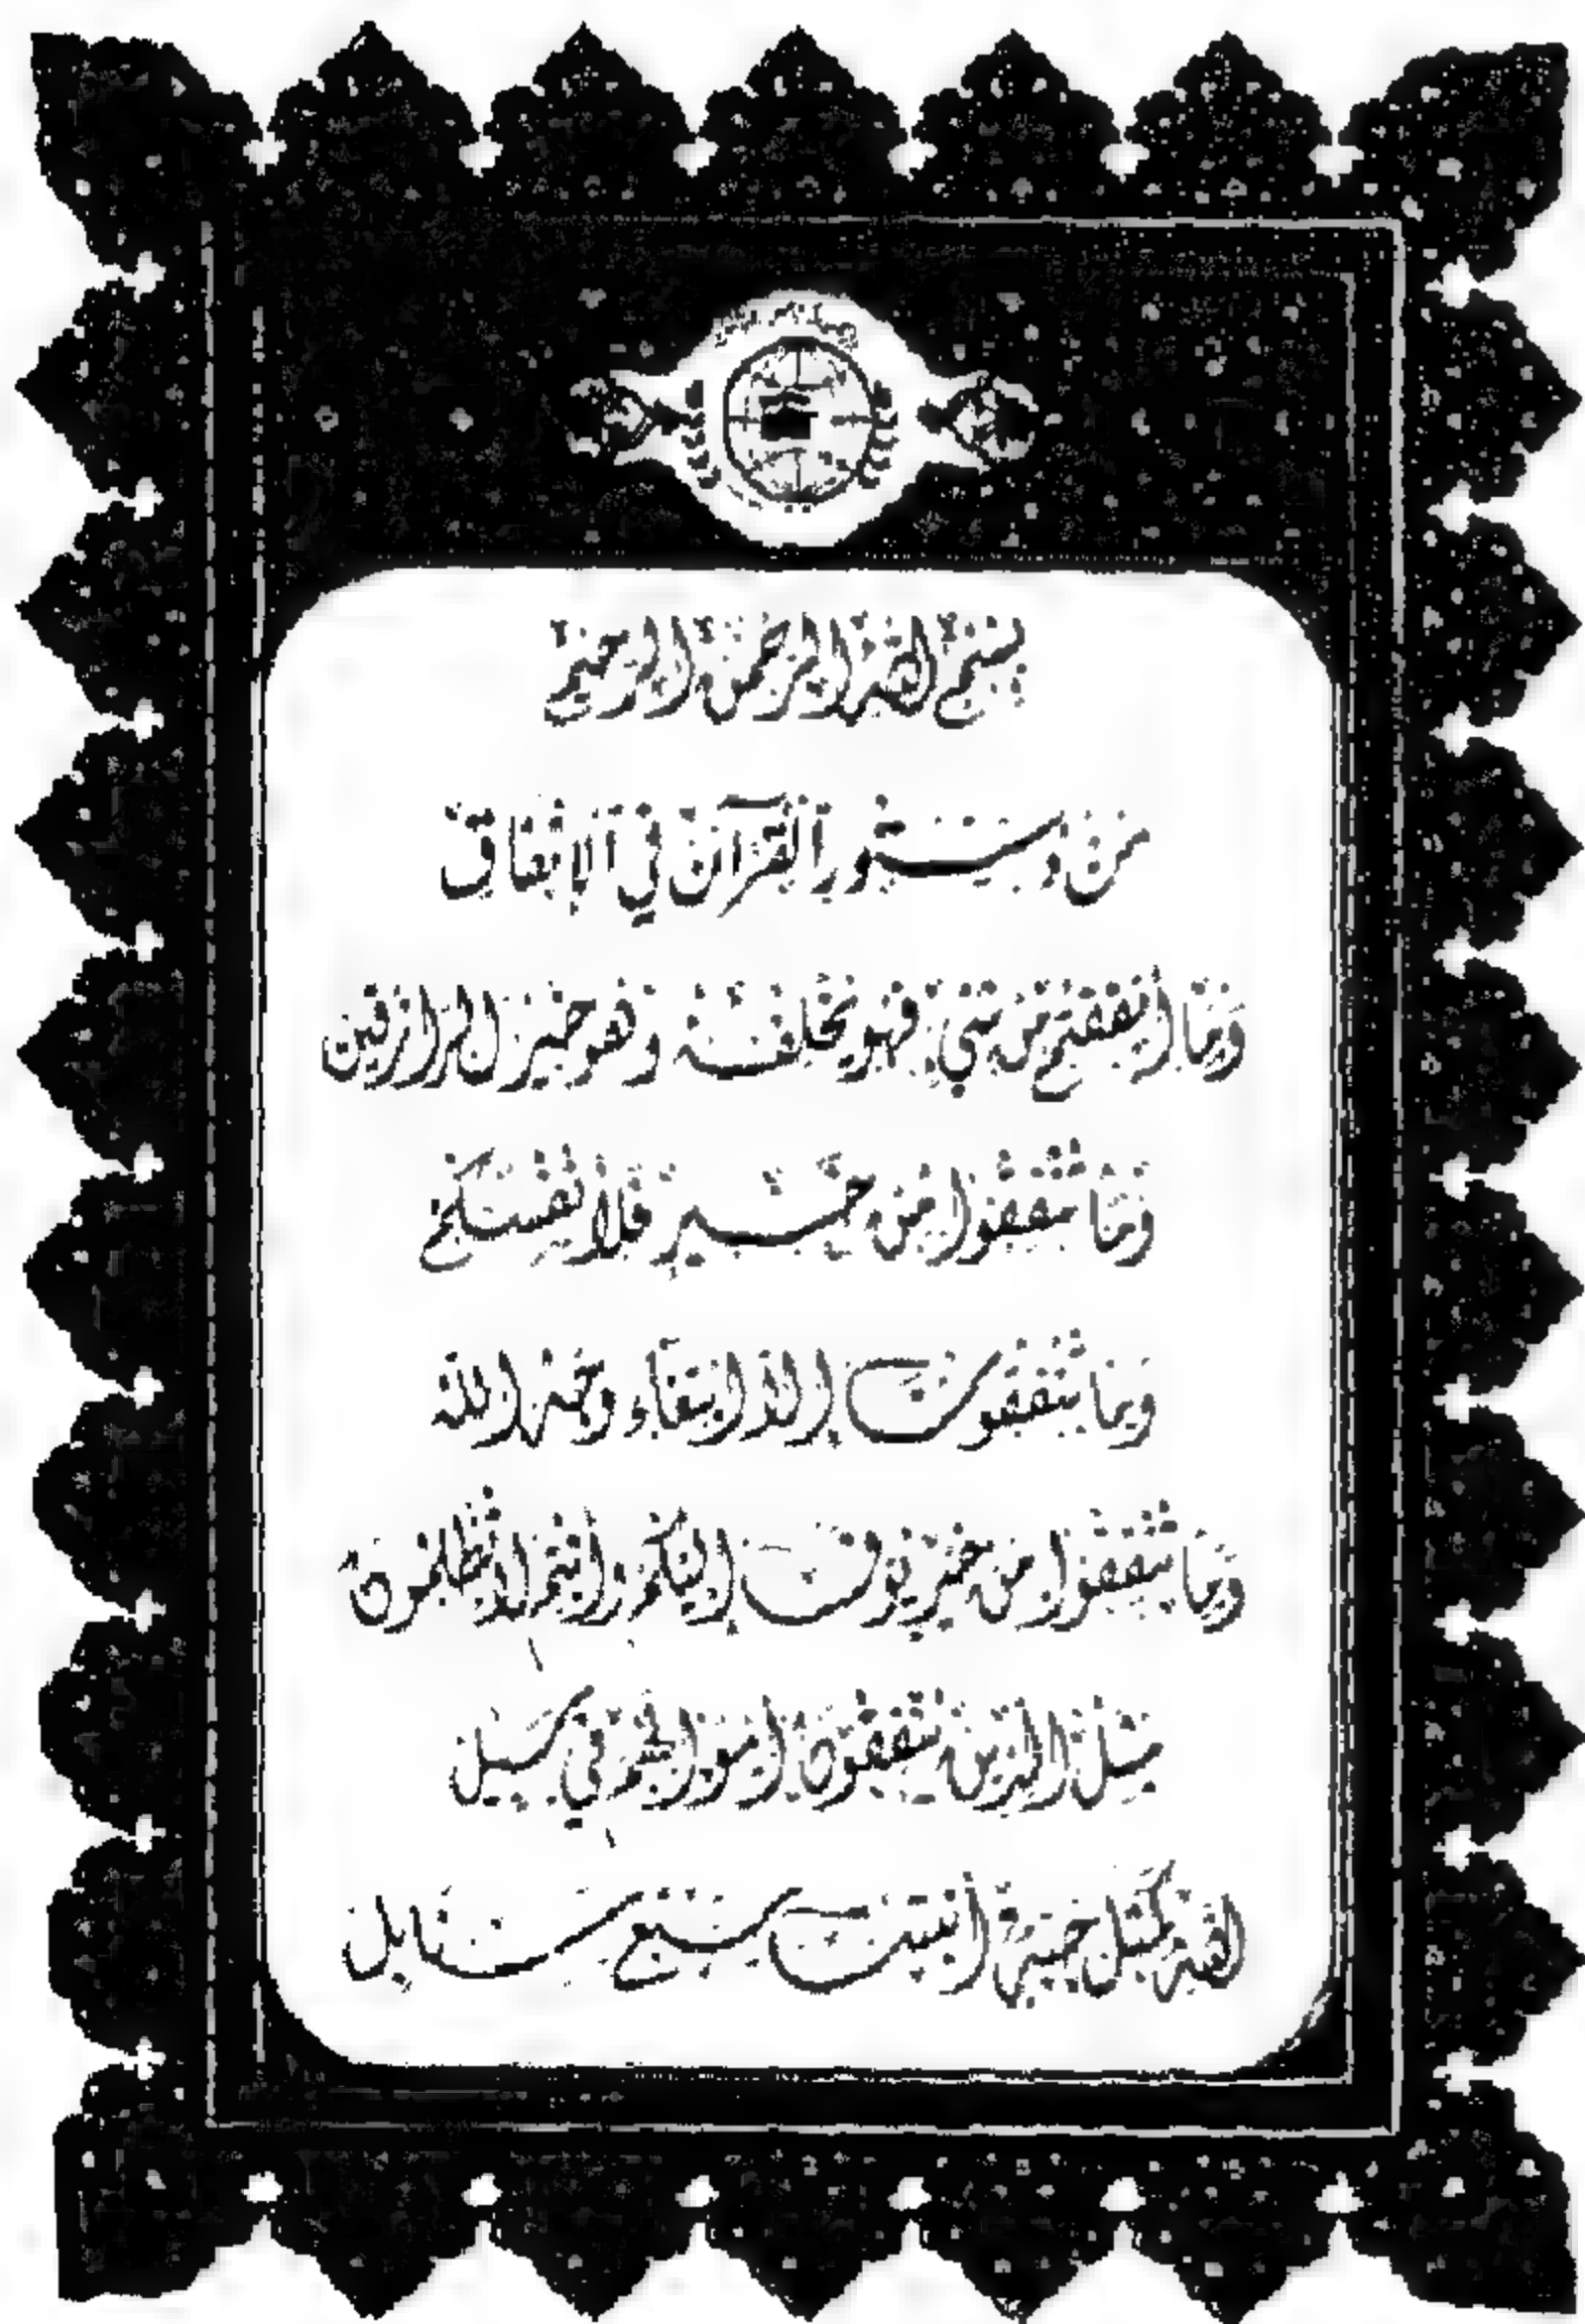 بسم الله الرحمن الرحيم
من دستور القرآن في الإنفاق
وما أنفقتم من شيء فهو يخلفه وهو خير الرازقين
وما تنفقوا من خير فلأنفسكم
وما تنفقون إلا ابتغاء وجه الله
وما تنفقوا من خير يوف إليكم وأنتم لا تظلمون
مثل الذين ينفقون أموالهم في سبيل
الله كمثل حبة أنبتت سبع سنابل